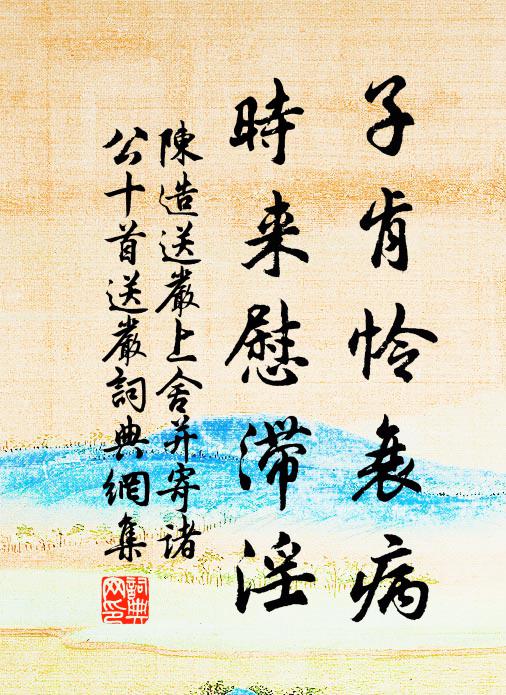 子肯怜衰病
時来慰滞淫
陳造送嚴上舍并寄諸
公十首送嚴詞典網集
詞典
网印